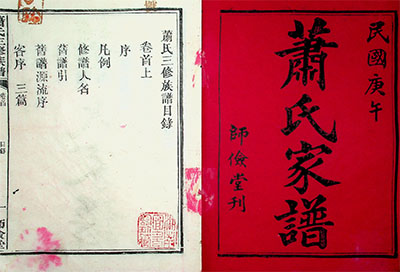 民國庚午
蕭氏家譜
師儉堂刊
蕭氏三修族譜目錄
卷首上
序
凡例
修譜人名
舊譜引
舊譜源流序
客序 三篇